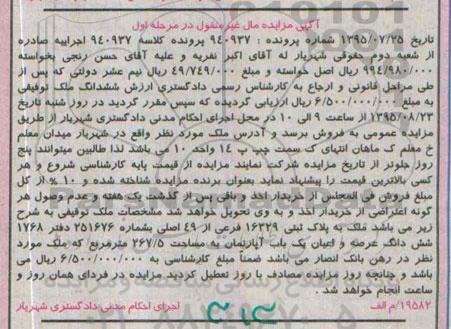 آگهی مزایده مال غیرمنقول در مرحله اول
تاریخ ۱۳۹۵/۰۷/۲۵ شماره پرونده : ۹۴۰۹۳۷ پرونده کلاسه ۹۴۰۹۳۷ اجراییه صادره
از شعبه دوم حقوقی شهریار له آقای اکبر نفریه و علیه آقای حسن رنجی بخواسته
۹۹۴/۹۸۰/۰۰۰ ریال اصل خواسته و مبلغ ۴۹/۷۴۹/۰۰۰ ریال نیم عشر دولتی که پس از
طی مراحل قانونی و ارجاع به کارشناس رسمی دادگستری ارزش ششدانگ ملک توقیفی
به مبلغ ۶/۵۰۰/۰۰۰/۰۰۰ ریال ارزیابی گردیده که سپس مقرر گردید در روز شنبه تاریخ
۱۳۹۵/۰۸/۲۳ از ساعت ۹ الی ۱۰ در محل اجرای احکام مدنی دادگستری شهریار از طریق
مزایده عمومی به فروش برسد و آدرس ملک مورد نظر واقع در شهریار میدان معلم
خ معلم ک ماهان انتهای ک سمت چپ پ ۱۴ واحد ۱۰ می باشد لذا طالبین میتوانند پنج
روز جلوتر از تاریخ مزایده شرکت نمایند مزایده از قیمت پایه کارشناسی شروع و هر
کسی بالاترین قیمت را پیشنهاد نماید بعنوان برنده مزایده شناخته شده و ۱۰ % از کل
مبلغ فروش فی المجلس از خریدار اخذ و باقی پس از گذشت یک هفته و عدم وصول هر
گونه اعتراضی از خریدار اخذ و به وی تحویل خواهد شد مشخصات ملک توقیفی به شرح
زیر می باشد ملک به پلاک ثبتی ۱۶۳۳۹ فرعی از ۴۹ اصلی بشماره ۲۵۱۶۷۶ دفتر ۱۷۶۸
شش دانگ عرصه و اعیان یک باب آپارتمان به مساحت ۲۶۷/۵ مترمربع که ملک مورد
نظر در رهن بانک انصار می باشد ضمناً مبلغ کارشناسی به ۶/۵۰۰/۰۰۰/۰۰۰ ریال می
باشد و چنانچه روز مزایده مصادف با روز تعطیل گردید مزایده در فردای همان روز و
ساعت انجام خواهد شد .
۱۹۵۸۲/م الف اجرای احکام مدنی دادگستری شهریار